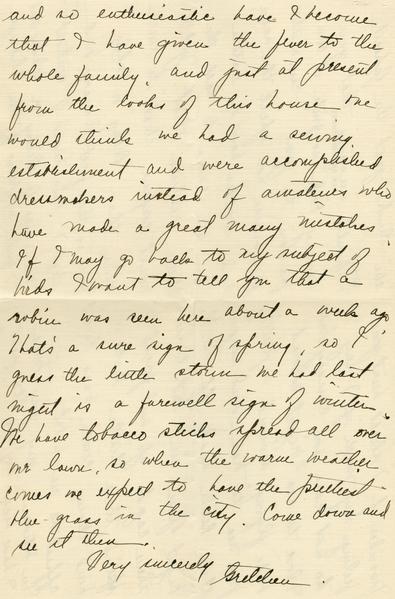 and so enthusiastic have I become
that I have given the fever to the
whole family, and just at present
from the looks of this house one
would think we had a sewing
establishment and were accomplished
dressmakers instead of amateurs who
have made a great many mistakes.
If I may go back to my subject of
birds I want to tell you that a
robin was seen here about a week ago.
That's a sure sign of spring, so I
guess the little storm we had last
night is a farewell sign of winter.
We have tobacco sticks spread all over
our lawn, so when the warm weather
comes we expect to have the prettiest
blue-grass in the city. Come down and
see it then.
Very sincerely
Gretchen.